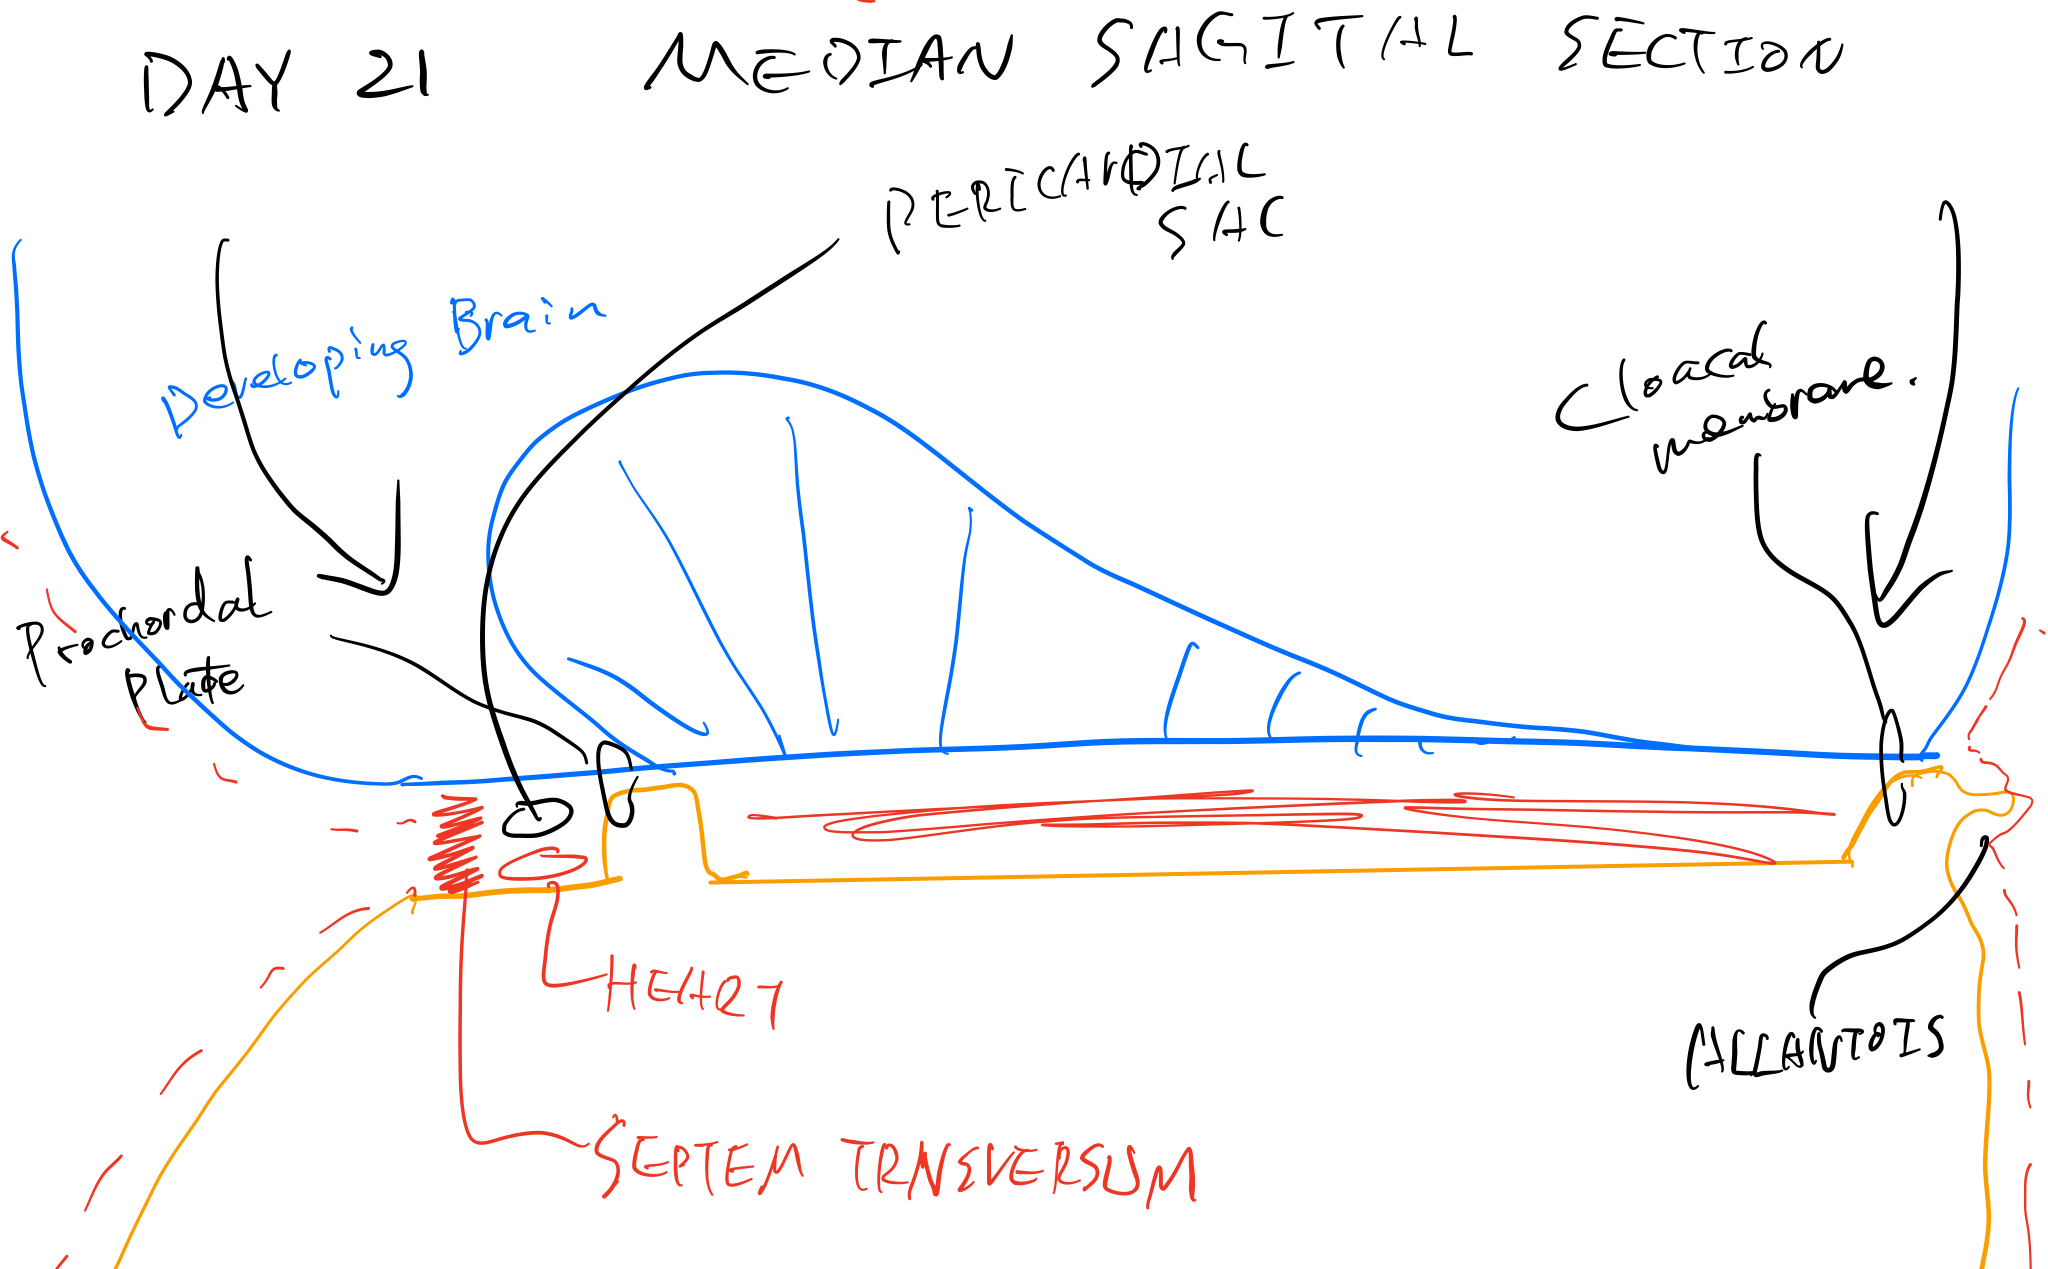 DAY 21 MEDIAN SAGITAL SECTION
PERICARDIAL
SAC
Developing Brain
Cloacal
membrane.
Prochordal
Plate
HEART
ALLANTOIS
SEPTEM TRNSVERSUM